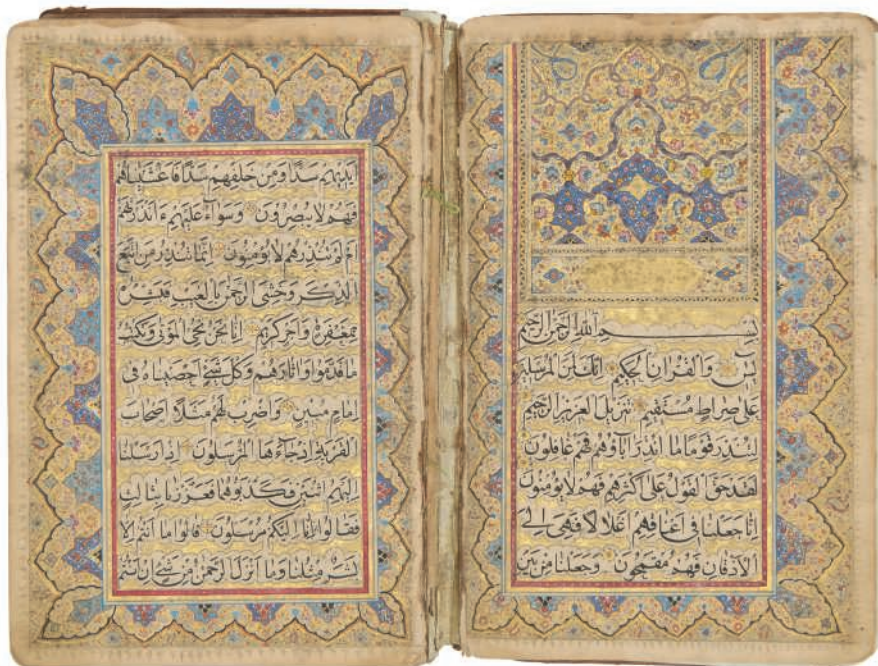 بسم الله الرحمن الرحیم
یس والقران الحکیم انک لمن المرسلین
علی صراط مستقیم تنزیل العزیز الرحیم
لتنذر قوما ما انذر اباؤهم فهم غافلون
لقد حق القول علی اکثرهم فهم لا یؤمنون
انا جعلنا فی اعناقهم اغلالا فهی الی
الاذقان فهم مقمحون وجعلنا من بین
ایدیهم سدا ومن خلفهم سدا فاغشیناهم
فهم لا یبصرون وسواء علیهم ءانذرتهم
ام لم تنذرهم لا یؤمنون انما تنذر من اتبع
الذکر وخشی الرحمن بالغیب فبشره
بمغفرة واجر کریم انا نحن نحی الموتی ونکتب
ما قدموا واثارهم وکل شیء احصیناه فی
امام مبین واضرب لهم مثلا اصحاب
القریة اذ جاءها المرسلون اذ ارسلنا
الیهم اثنین فکذبوهما فعززنا بثالث
فقالوا انا الیکم مرسلون قالوا ما انتم الا
بشر مثلنا وما انزل الرحمن من شیء ان انتم